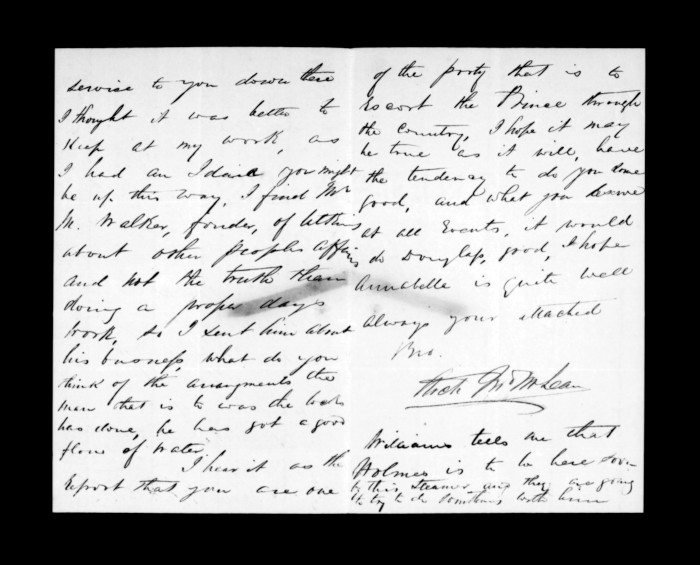 service to you down there
I thought it was better to
Keep at my work, as
I had an Idaia you might
be up this way, I find Mr
M. Walker, fonder, of letting
about other peoples affairs
and not the truth than
doing a proper days
work, so I sent him about
his business, what do you
think of the arrangments the
man that is to was the
has done, he has got a good
flow of water.
I hear it as the
report that you are one
of the party that is to
Escort the Prince through
the country, I hope it may
be true as it will, have
the tendency to do you some
good, and what you deserve
at all Events, it would
do Douglas, good, I hope
Annabella is quite well
always your attached
Bro.
Archd Jno McLean
Williams tells me that
Holmes is to be here soon
by this steamer and they are going
to try to do something with him